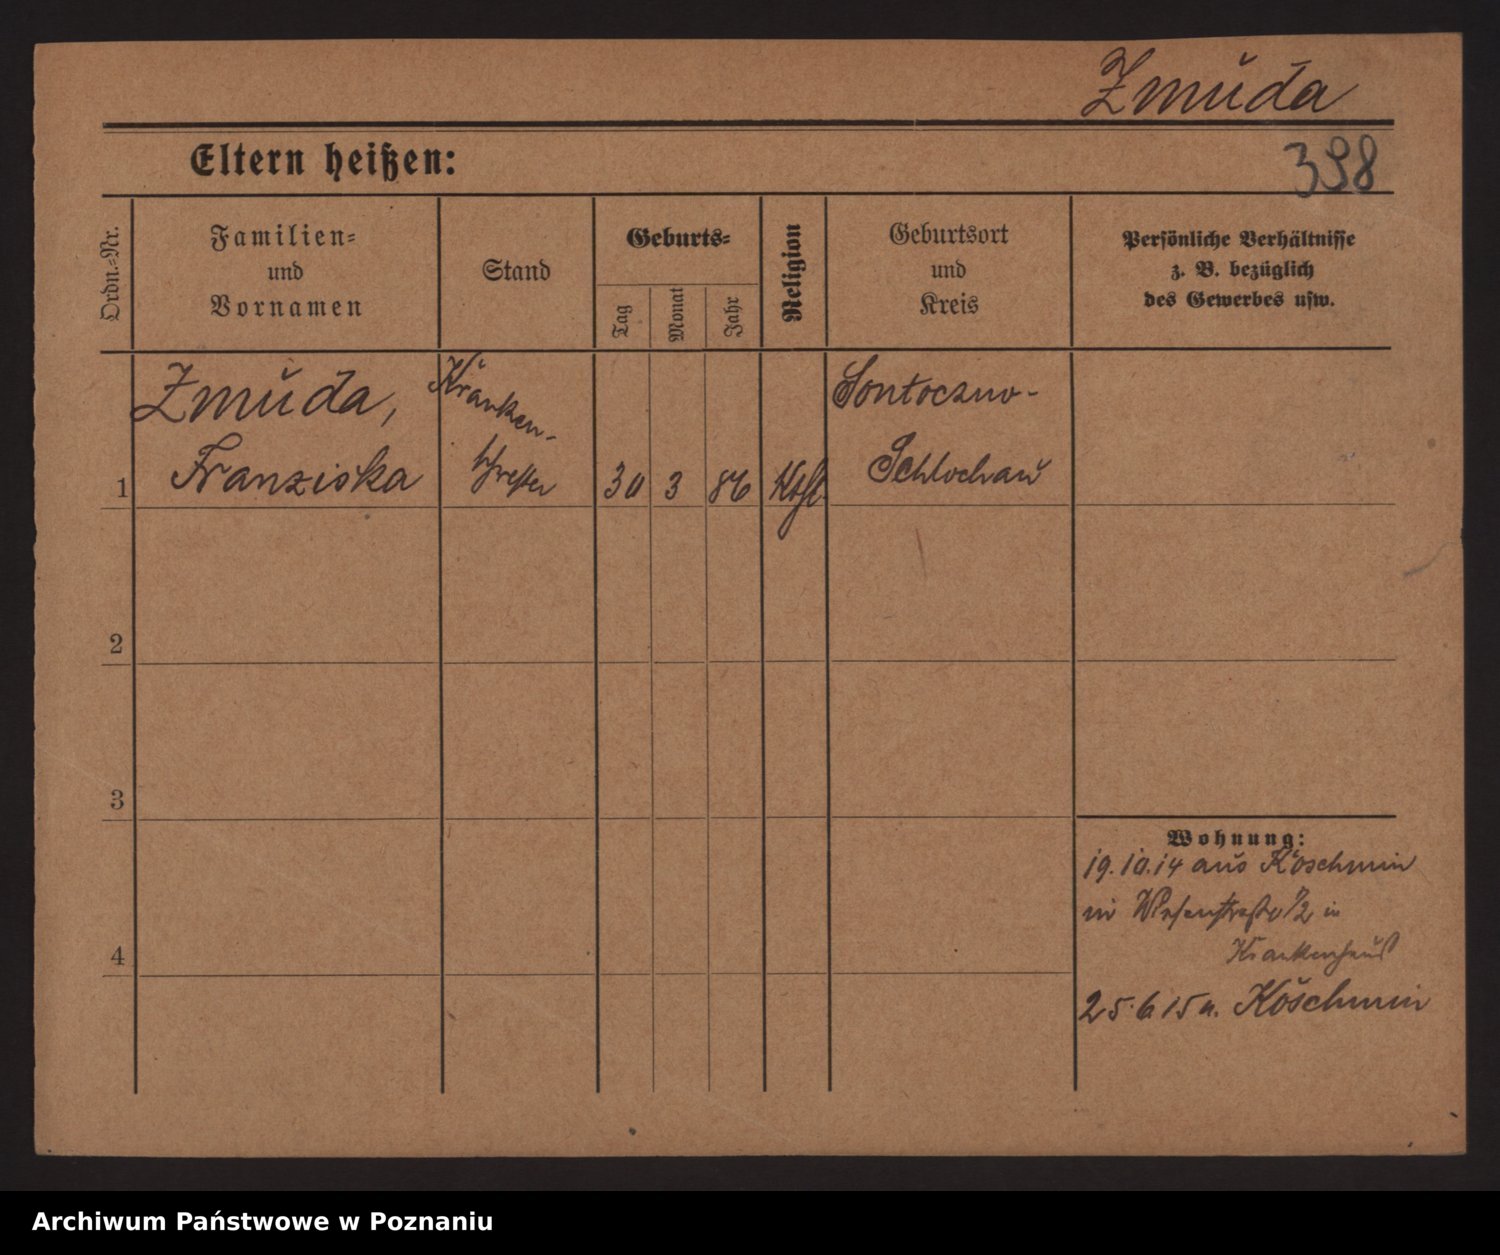 Zmuda
Eltern heißen:
398
Ordn.=Nr.
Familien=
und
Vornamen
Stand
Geburts=
Tag
Monat
Jahr
Religion
Geburtsort
und
Kreis
Persönliche Verhältnisse
z. B. bezüglich
des Gewerbes usw.
Zmuda,
Kranken-
Sontoczno-
1
Franziska
schwester
30
3
86
Kthl
Schlochau
2
3
4
Wohnung:
19.10.14 aus Koschmin
in Wiesenstraße 1/2 in
Krankenhaus
25.6.15 n. Koschmin
Archiwum Państwowe w Poznaniu